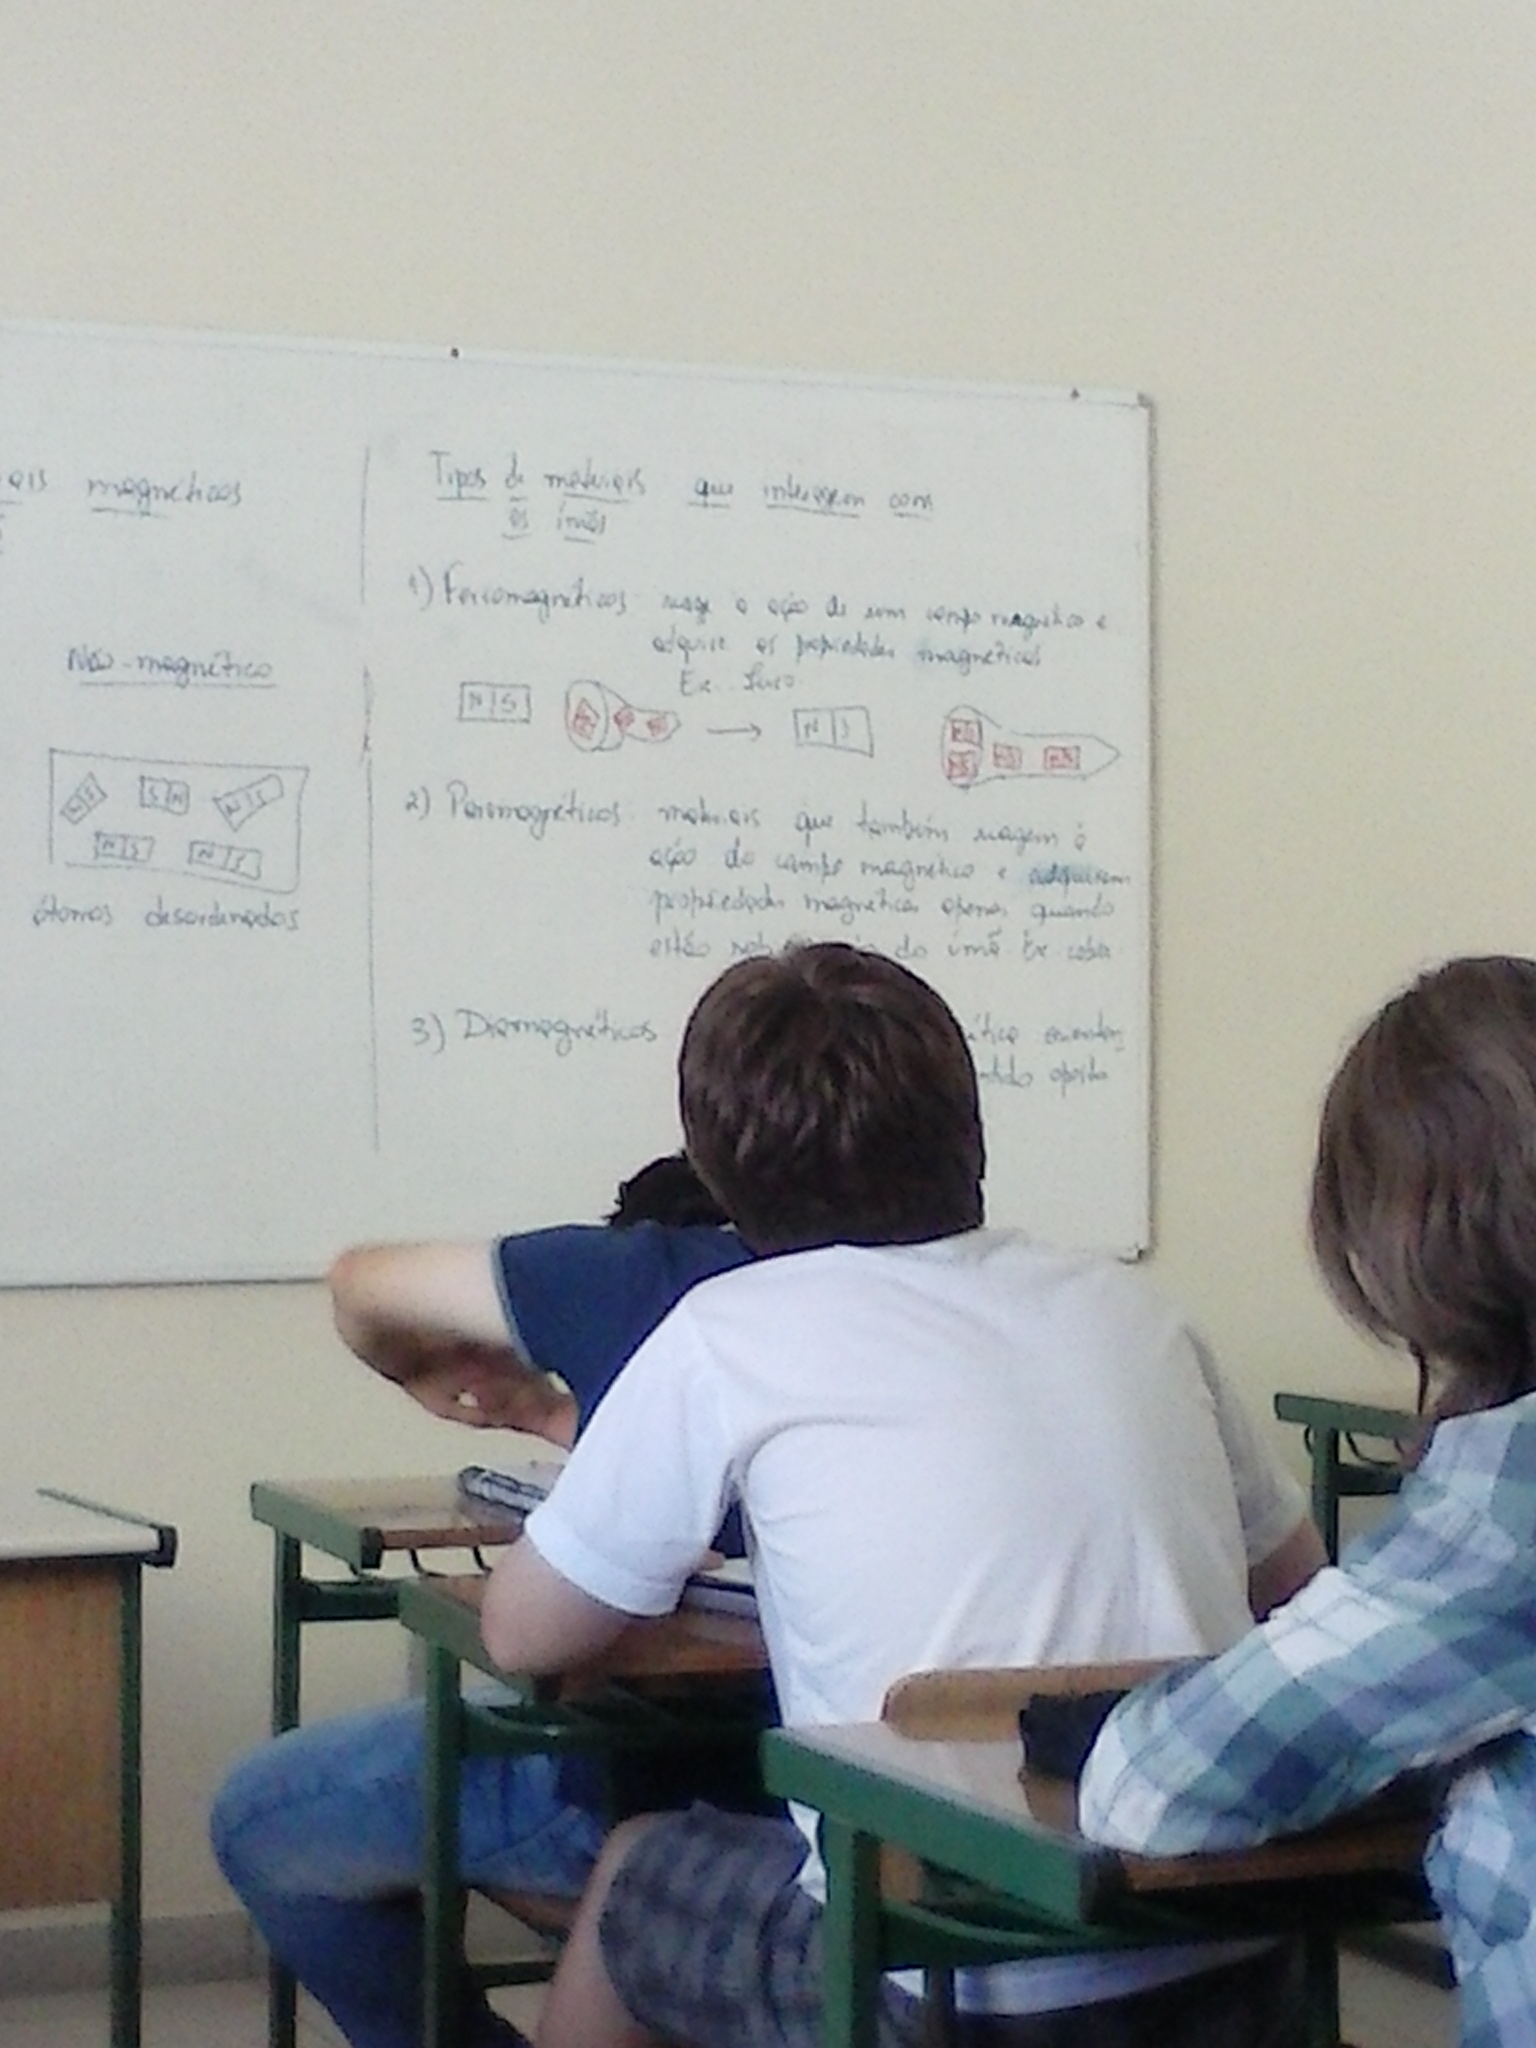 magnéticos
Não-magnético
N S
S N
N S
N S
N S
átomos desordenados
Tipos de materiais que interagem com
os ímãs
1) Ferromagnéticos reage a ação de um campo magnético e
adquire as propriedades magnéticas
Ex. ferro
N S
N S
2) Paramagnéticos materiais que também reagem à
ação do campo magnético e adquirem
propriedades magnéticas apenas quando
estão do ímã Ex
3) Diamagnéticos
oposto